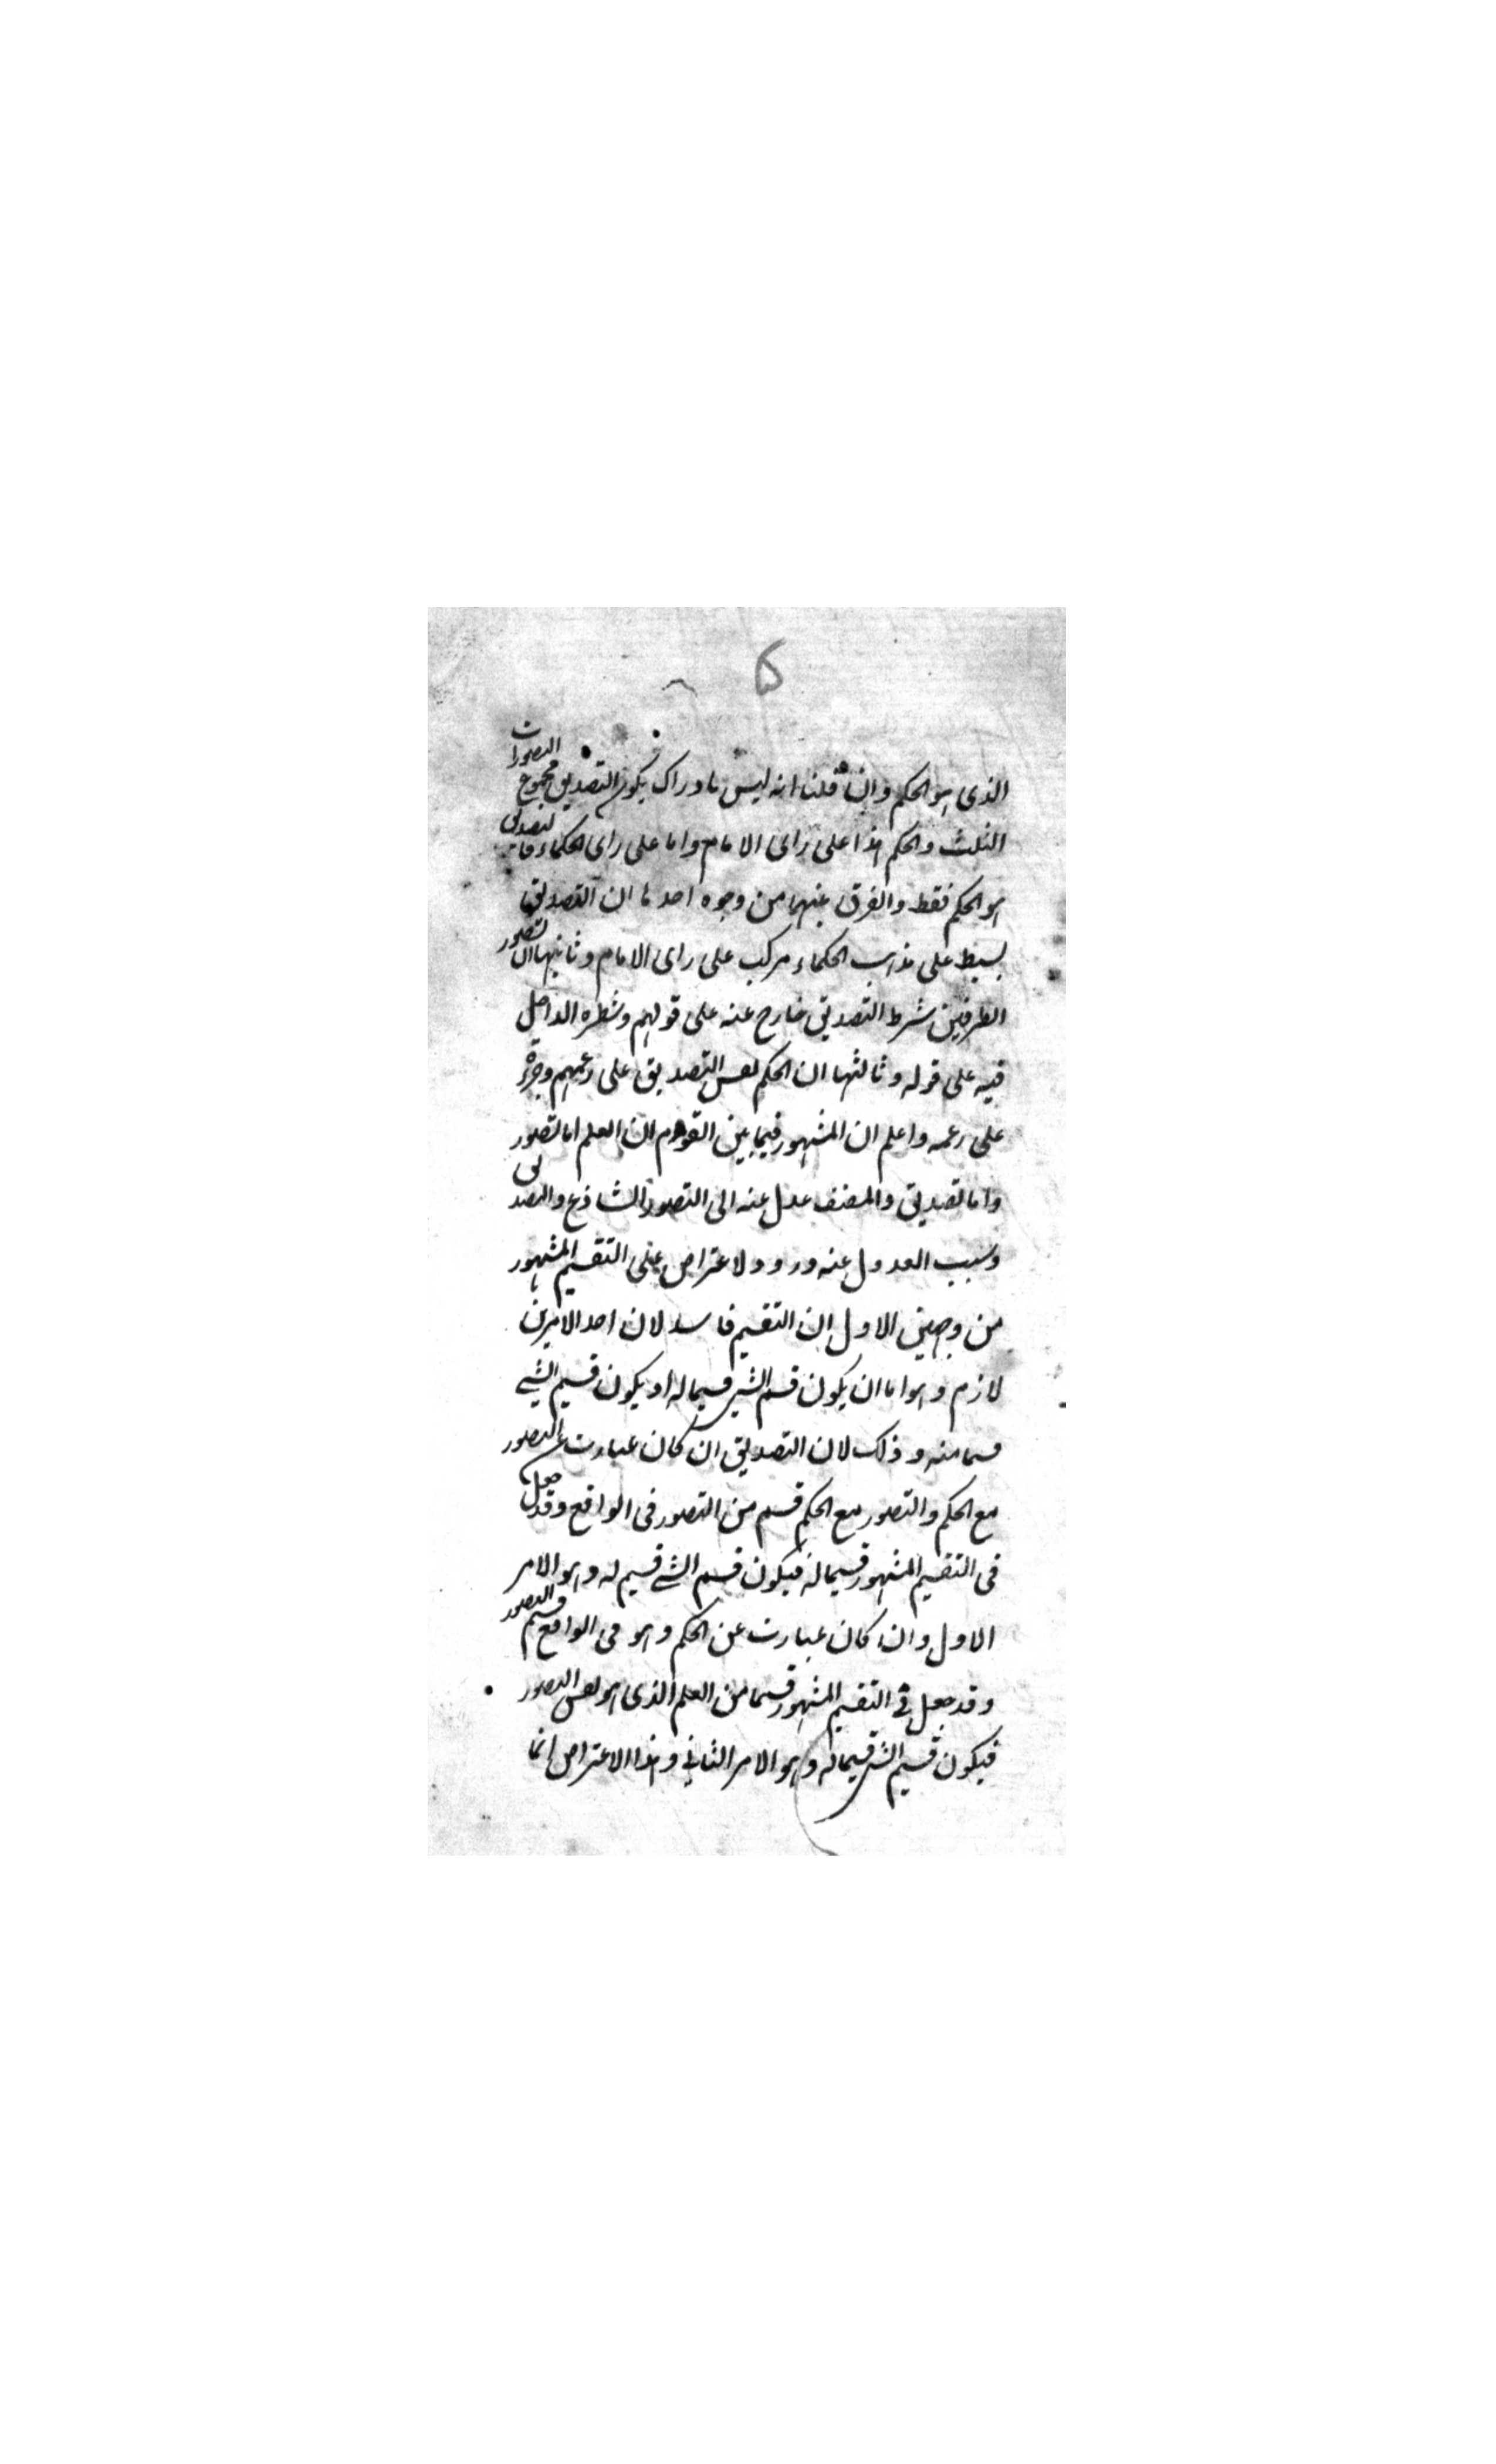 ۵
الذى هو الحكم وان قلنا انه ليس بادراك يكون التصديق مجموع التصورات
الثلث والحكم هذا على راى الامام واما على راى الحكماء فالتصديق
هو الحكم فقط والفرق بينهما من وجوه احدها ان التصديق
بسيط على مذهب الحكماء مركب على راى الامام وثانيها ان تصور
الطرفين شرط التصديق خارج عنه على قولهم وشطره الداخل
فيه على قوله وثالثها ان الحكم نفس التصديق على زعمهم وجزؤه
على زعمه واعلم ان المشهور فيما بين القوم ان العلم اما تصور
واما تصديق والمصنف عدل عنه الى التصور الساذج والتصديق
وسبب العدول عنه ورود لاعتراض على التقسيم المشهور
من وجهين الاول ان التقسيم فاسد لان احد الامرين
لازم وهو اما ان يكون قسم الشئ قسيما له او يكون قسيم الشئ
قسما منه وذلك لان التصديق ان كان عبارت عن التصور
مع الحكم والتصور مع الحكم قسم من التصور فى الواقع وقد جعل
فى التقسيم المشهور قسيما له فيكون قسم الشئ قسيم له وهو الامر
الاول وان كان عبارت عن الحكم وهو فى الواقع قسيم التصور
وقد جعل فى التقسيم المشهور قسما من العلم الذى هو نفس التصور
فيكون قسيم الشئ قسيما له وهو الامر الثانى وهذا الاعتراض انما